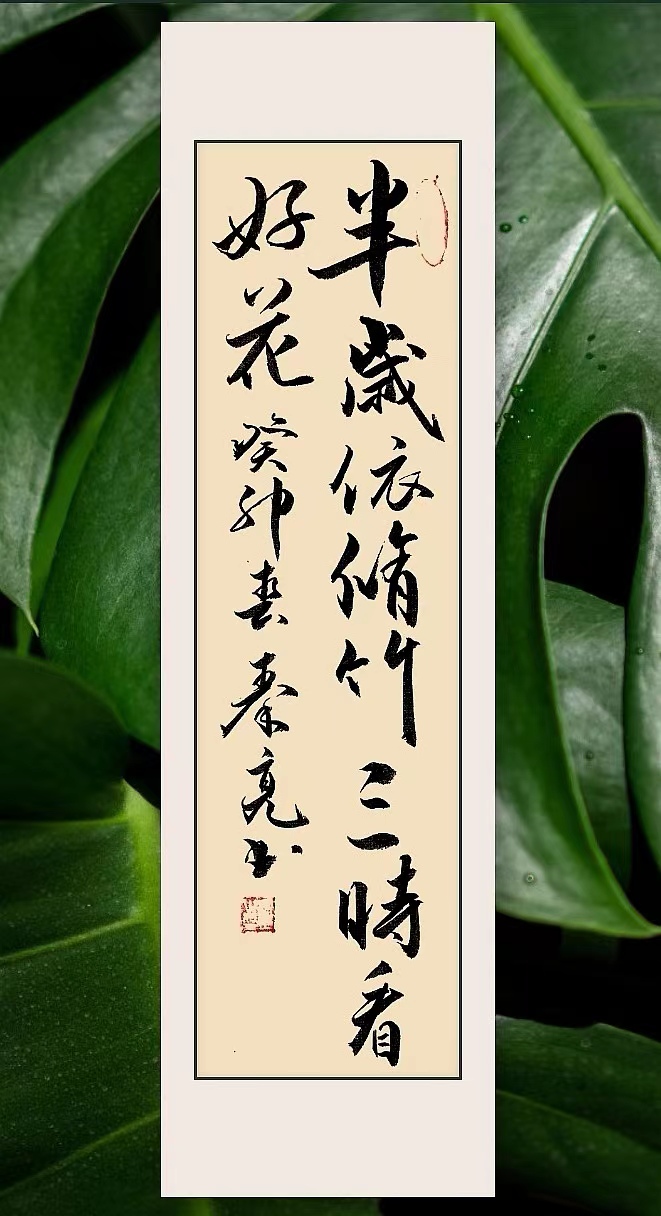 半歲依脩竹三時看
好花癸卯春秦亮书